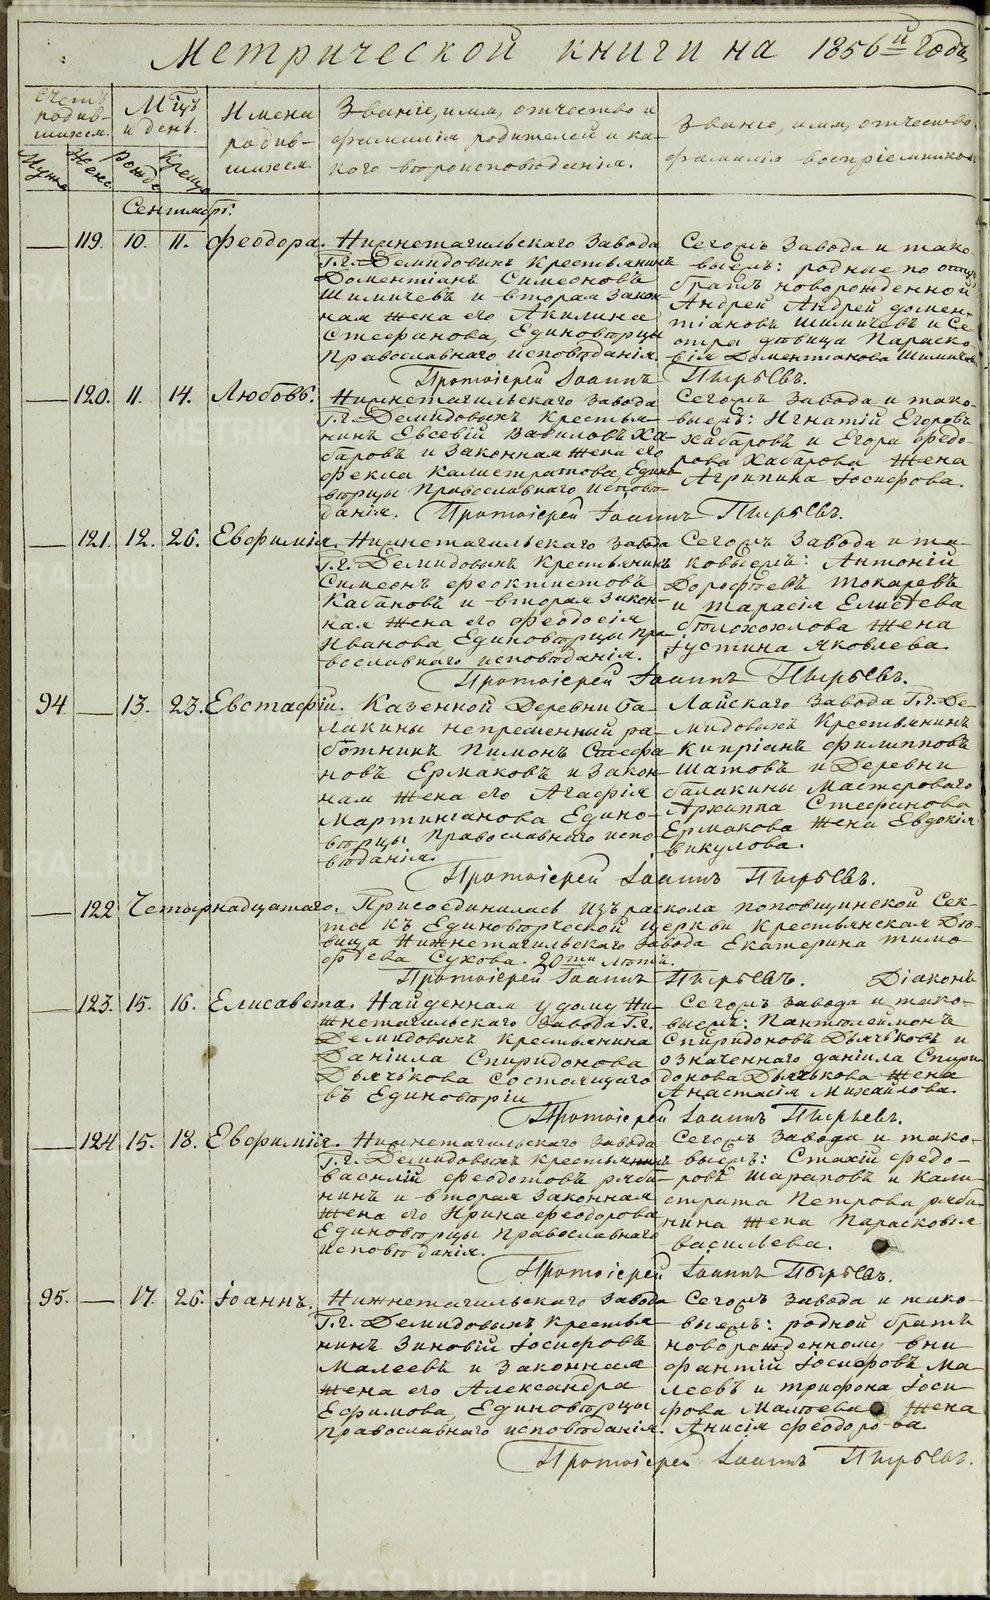 Метрической книги на 1856й годъ
Счетъ родив-шихся.
Муж. Женс.
Мцъ и день.
Рожд. Крещ.
Имена родив-шихся
Званіе, имя, отчество и фамилія родителей и ка-кого вѣроисповѣданія.
Званіе, имя, отчество фамилія воспріемников
Сентябрь.
119. 10. 11. Феодора.
Нижнетагильскаго завода
Г.г. Демидовыхъ крестьянинъ
Доментіанъ Симеоновъ
Шиличевъ и вторая закон-
ная жена его Акилина
Стефанова, Единовѣрцы
Православнаго исповѣданія
Сегожъ завода и тако-
выежъ: родные по отцу
братъ новорожденной
Андрей Андрей домен-
тіановъ Шиличевъ и Се-
стра дѣвица Параско-
вія Доментіанова Шиличева
Протоіерей Іоаннъ Пырьевъ.
120. 11. 14. Любовь.
Нижнетагильскаго завода
Г.г. Демидовыхъ крестья-
нинъ Евсевій Вавиловъ Ха-
баровъ и законная жена его
Фекла Калистратова, Едино-
вѣрцы Православнаго исповѣ-
данія.
Сегожъ завода и тако-
выежъ: Игнатій Егоровъ
Хабаровъ и Егора Федо-
рова Хабарова жена
Агрипина Іосифова.
Протоіерей Іоаннъ Пырьевъ.
121. 12. 26. Евфимія.
Нижнетагильскаго завода
Г.г. Демидовыхъ крестьянинъ
Симеонъ Феоктистовъ
Кабановъ и вторая закон-
ная жена его Феодосія
Иванова, Единовѣрцы Пра-
вославнаго исповѣданія.
Сегожъ завода и та-
ковыежъ: Антоній
Дорофѣевъ Токаревъ
и Тарасія Елисѣева
Бѣлохохлова жена
Іустина Яковлева.
Протоіерей Іоаннъ Пырьевъ.
94. 13. 23. Евстафій.
Казенной Деревни Га-
лакины непременный ра-
ботникъ Пимонъ Стефа-
новъ Ермаковъ и закон-
ная жена его Агафія
Мартиніанова Едино-
вѣрцы Православнаго испо-
вѣданія.
Лайскаго завода Г.г. Де-
мидовыхъ крестьянинъ
Кипріанъ Филипповъ
Шатовъ и Деревни
Галакины Мастероваго
Архиппа Стефанова
Ермакова жена Евдокія
Викулова.
Протоіерей Іоаннъ Пырьевъ.
122 Четырнадцатаго. Присоединилась изъ раскола поповщинской Сек-
ты къ Единовѣрческой церкви крестьянская дѣ-
вица Нижнетагильскаго завода Екатерина Тимо-
фѣева Сухова. 20ти лѣтъ.
Протоіерей Іоаннъ Пырьевъ. Діаконъ
123. 15. 16. Елисавета.
Найденная у дому Ни-
жнетагильскаго завода Г.г.
Демидовыхъ крестьянина
Даніила Спиридонова
Дьячкова состоящаго
въ Единовѣріи
Сегожъ завода и тако-
выежъ: Пантелеймонъ
Спиридоновъ Дьячковъ и
означеннаго Даніила Спири-
донова Дьячькова жена
Анастасія Михайлова.
Протоіерей Іоаннъ Пырьевъ.
124 15. 18. Евфимія.
Нижнетагильскаго завода
Г.г. Демидовыхъ крестьянинъ
Василій Феодотовъ Ряби-
нинъ и вторая законная
жена его Ирина Феодорова
Единовѣрцы Православнаго
исповѣданія.
Сегожъ завода и тако-
выежъ: Стахій Федо-
ровъ Шараповъ и Кали-
страта Петрова Ряби-
нина жена Парасковья
Васильева.
Протоіерей Іоаннъ Пырьевъ.
95. 17. 26. Іоаннъ.
Нижнетагильскаго завода
Г.г. Демидовыхъ крестья-
нинъ Зиновій Іосифовъ
Малеевъ и законная
жена его Александра
Ефимова, Единовѣрцы
Православнаго исповѣданія.
Сегожъ завода и тако-
выежъ: родной братъ
новорожденному Вни-
фантій Іосифовъ Ма-
леевъ и Трифона Іоси-
фова Малѣева жена
Анисія Феодорова.
Протоіерей Іоаннъ Пырьевъ.
METRIKI.GASO-URAL.RU